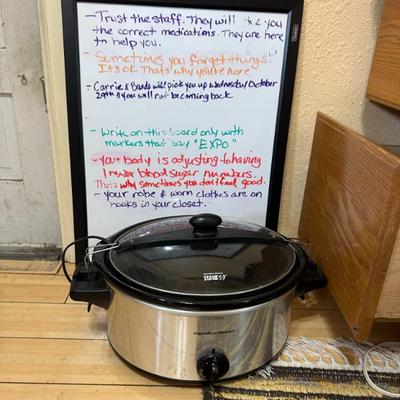 - Trust the staff. They will give you
the correct medications. They are here
to help you.
- Sometimes you forget things.
It's ok. That's why you're here
- Carrie & will pick you up Wednesday October
29th & you will not be coming back
- Write on this board only with
markers that say "EXPO"
- your body is adjusting to having
lower blood sugar numbers.
Thats why sometimes you don't feel good.
- your robe & worn clothes are on
hooks in your closet.
Hamilton Beach